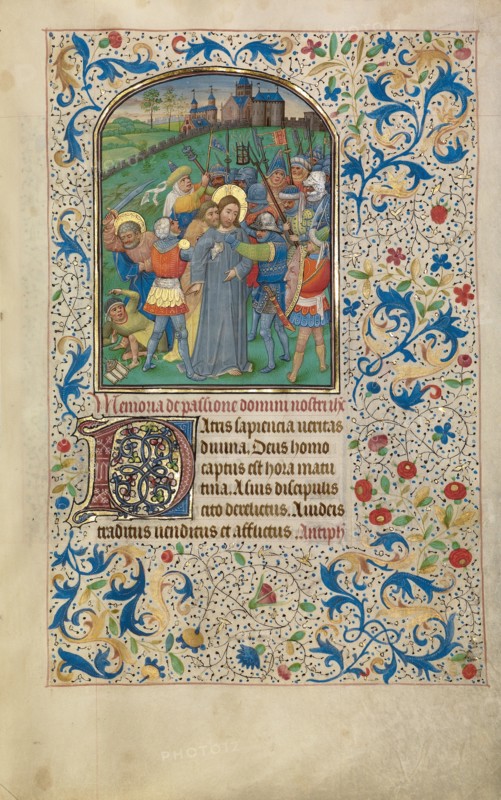 Memoria de passione domini nostri ih
Patris sapiencia ueritas
diuina. Deus homo
captus est hora matu
tina. A suis discipulis
cito derelictus. A iudeis
traditus uenditus et afflictus. Antiph
PHOTO12